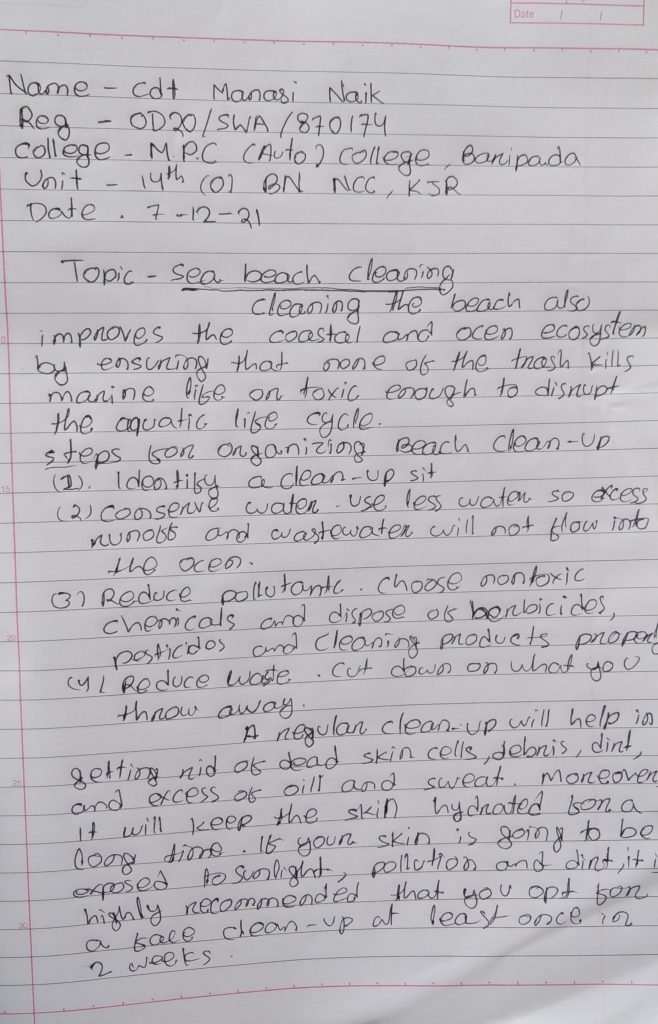 Date / /
Name - Cdt Manasi Naik
Reg - OD20/SWA/870174
College - M.P.C (Auto) College, Baripada
Unit - 14th (O) BN NCC, KJR
Date . 7-12-21
Topic - Sea beach cleaning
cleaning the beach also
improves the coastal and ocen ecosystem
by ensuring that none of the trash kills
marine life or toxic enough to disrupt
the aquatic life cycle.
steps for organizing Beach clean-up
(1). Identify a clean-up sit
(2) conserve water. use less water so excess
runoff and wastewater will not flow into
the ocen.
(3) Reduce pollutants. choose nontoxic
chemicals and dispose of herbicides,
pesticides and cleaning products properly
(4) Reduce waste. Cut down on what you
throw away.
A regular clean-up will help in
getting rid of dead skin cells, debris, dirt,
and excess of oill and sweat. Moreover
it will keep the skin hydrated for a
long time. If your skin is going to be
exposed to sunlight, pollution and dirt, it i
highly recommended that you opt for
a face clean-up at least once in
2 weeks.
15
20
25
30